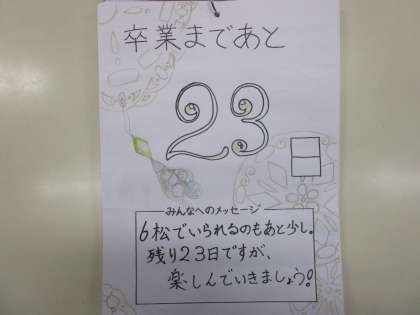 卒業まであと
23
みんなへのメッセージ
6松でいられるのもあと少し。
残り23日ですが、
楽しんでいきましょう!